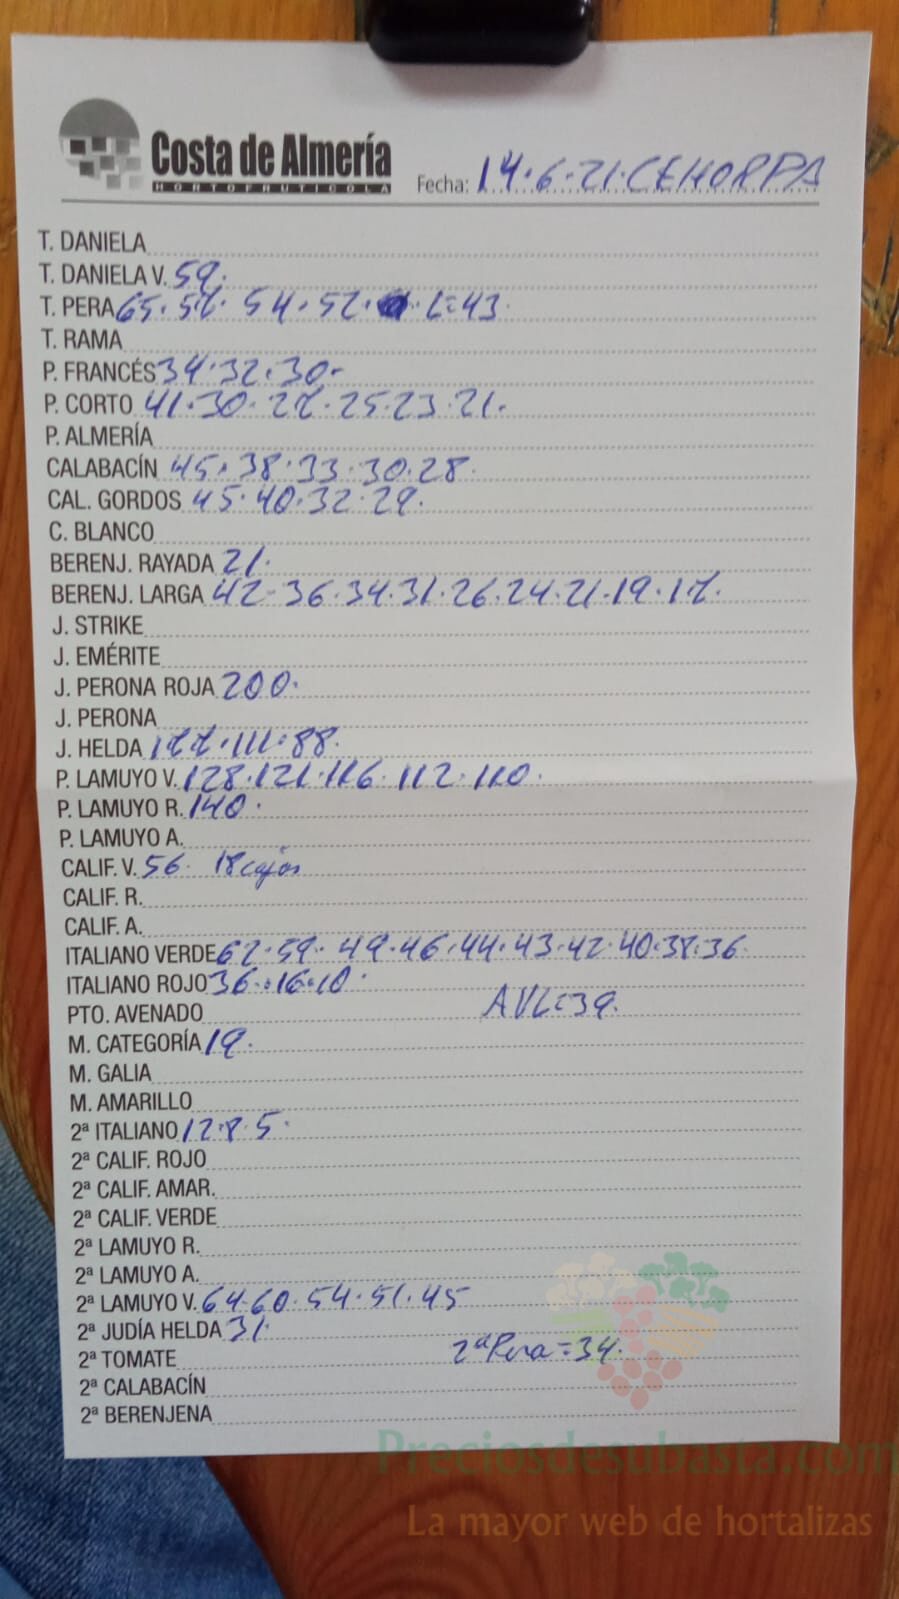 Costa de Almería
HORTOFRUTICOLA
Fecha: 14.6.21.CEHORPA
T. DANIELA
T. DANIELA V. 59.
T. PERA 65.57. 54.52. L=43.
T. RAMA
P. FRANCÉS 34.32.30.-
P. CORTO 41.30.27.25.23.21.
P. ALMERÍA
CALABACÍN 45.38.33.30.28.
CAL. GORDOS 45.40.32.29.
C. BLANCO
BERENJ. RAYADA 21.
BERENJ. LARGA 42-36.34.31.26.24.21.19.17.
J. STRIKE
J. EMÉRITE
J. PERONA ROJA 200.
J. PERONA
J. HELDA 177.111.88.
P. LAMUYO V. 128.121.116 112.110.
P. LAMUYO R. 140.
P. LAMUYO A.
CALIF. V. 56. 18 cajas
CALIF. R.
CALIF. A.
ITALIANO VERDE 62.59. 49.46.44.43.42.40.38.36.
ITALIANO ROJO 36..16.10.
PTO. AVENADO AVL=39.
M. CATEGORÍA 19.
M. GALIA
M. AMARILLO
2ª ITALIANO 12.8.5.
2ª CALIF. ROJO
2ª CALIF. AMAR.
2ª CALIF. VERDE
2ª LAMUYO R.
2ª LAMUYO A.
2ª LAMUYO V. 64.60.54.51.45
2ª JUDÍA HELDA 31.
2ª TOMATE 2ª Pera=34.
2ª CALABACÍN
2ª BERENJENA
Preciosdesubasta.com
La mayor web de hortalizas